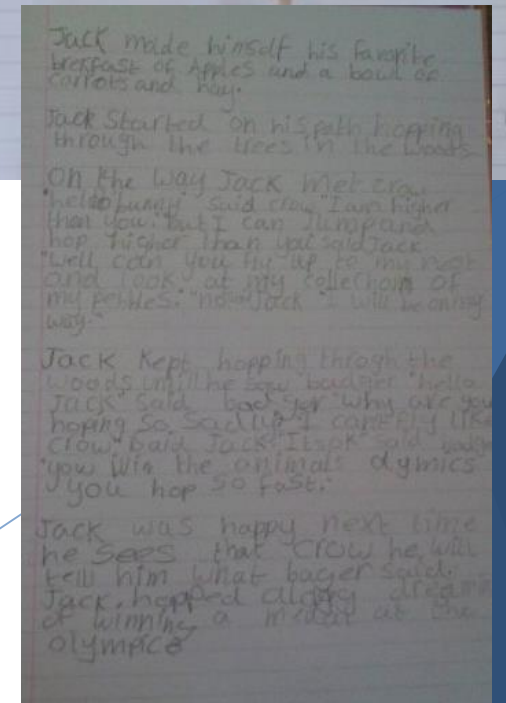 Jack made himself his favrite
brekfast of Apples and a bowl of
carrots and hay.
Jack Started on his path hopping
through the trees in the woods
On the way Jack met crow
"hello bunny" said crow "I am higher
then you." but I can Jump and
hop higher than you said Jack
"well can you fly up to my nest
and look at my collectoin of
my pebbles. "no" Jack "I will be on my
way."
Jack kept hopping throgh the
woods untill he saw badger "hello
Jack" said badger "why are you
hoping so sad up" I can't fly like
crow" said Jack "Its ok" said badge
"you win the animal olymics
you hop so fast."
Jack was happy next time
he sees that crow he will
tell him what bager said.
Jack. hopped along dreamin
of winning a medal at the
olympics